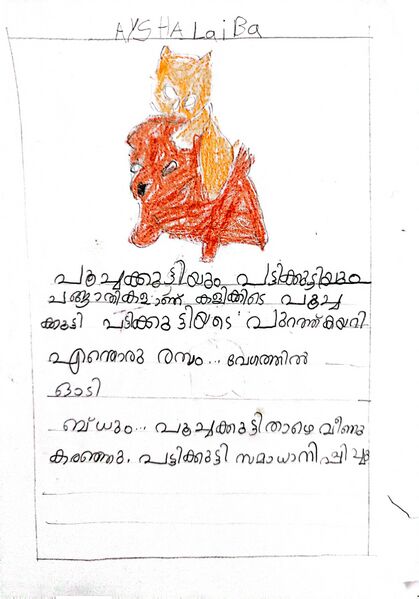 AYSHA LaiBa
പൂച്ചക്കുട്ടിയും പട്ടിക്കുട്ടിയും
ചങ്ങാതികളാണ് കളിക്കിടെ പൂച്ച
ക്കുട്ടി പട്ടിക്കുട്ടിയുടെ പുറത്ത് കയറി
എന്തൊരു രസം... വേഗത്തിൽ
ഓടി
ബ്ധും... പൂച്ചക്കുട്ടി താഴെ വീണു
കരഞ്ഞു. പട്ടിക്കുട്ടി സമാധാനിപ്പിച്ചു